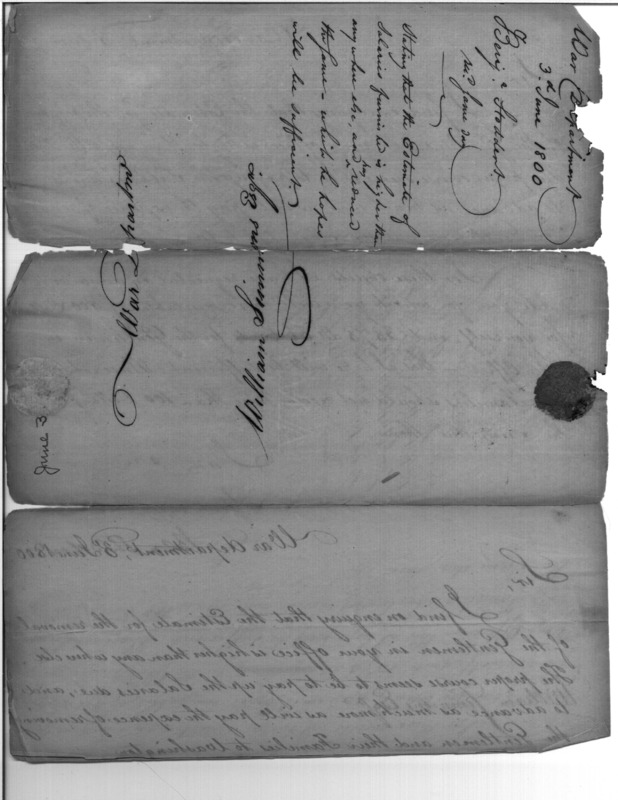 War Department
3d. June 1800
Benja. Stoddert
recd. same day
Stating that the Estimate of
Salaries furnished is higher than
any where else, and has reduced
the same - which he hopes
will be sufficient.
William Simmons Esqr.
War Department
June 3
War department, 3d. June 1800
Sir,
I find on enquiry that the Estimate for the removal
of the Gentlemen in your office is higher than any where else.
The proper course seems to be to pay up the Salaries due, and
to advance as much more as will pay the expence of removing
the Gentlemen and their Families to Washington